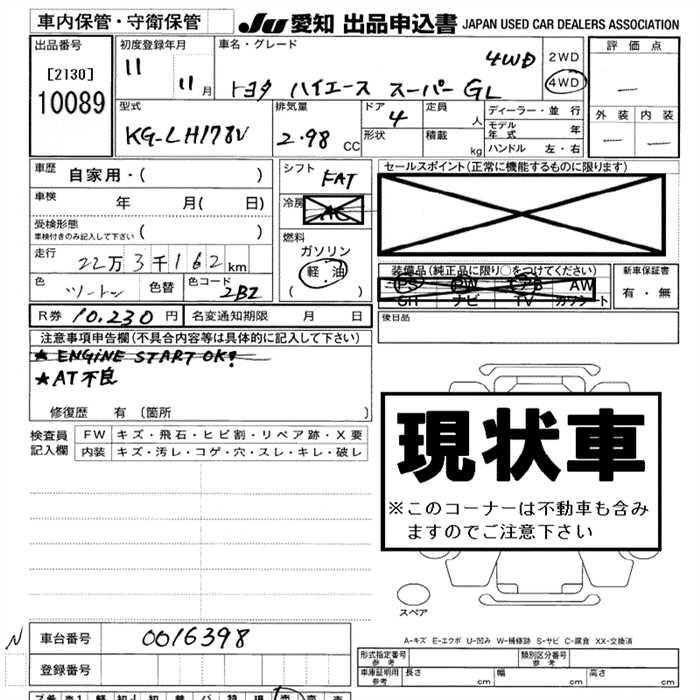 車内保管・守衛保管
JU 愛知 出品申込書 JAPAN USED CAR DEALERS ASSOCIATION
出品番号
[2130]
10089
初度登録年月
11 11月
車名・グレード
トヨタ ハイエース スーパーGL
4WD
2WD
4WD
評価点
外装 内装
型式
KG-LH178V
排気量
2.98 cc
ドア
4
形状
定員 人
積載 kg
ディーラー・並行
モデル年式 年
ハンドル 左・右
車歴
自家用・( )
車検
年 月( 日)
受検形態
車検付きのみ記入して下さい ( )
走行
22万3千162km
色
ツートン
色替
色コード
2BZ
シフト
FAT
冷房
AC
燃料
ガソリン
軽・油
( )
セールスポイント(正常に機能するものに限ります)
装備品(純正品に限り○をつけてください)
PS PW エアB AW
SR ナビ TV カワシート
新車保証書
有・無
R券 10.230円
名変通知期限 月 日
後日品
注意事項申告欄(不具合内容等は具体的に記入して下さい)
★ ENGINE START OK!
★AT不良
修復歴 有 〔箇所 〕
検査員記入欄
FW キズ・飛石・ヒビ割・リペア跡・X要
内装 キズ・汚レ・コゲ・穴・スレ・キレ・破レ
現状車
※このコーナーは不動車も含み
ますのでご注意下さい
スペア
A-キズ E-エクボ U-凹み W-補修跡 S-サビ C-腐食 XX-交換済
N
車台番号 0016398
登録番号
形式指定番号 参考
類別区分番号 参考
車庫証明用 参考
長さ cm 幅 cm 高さ cm